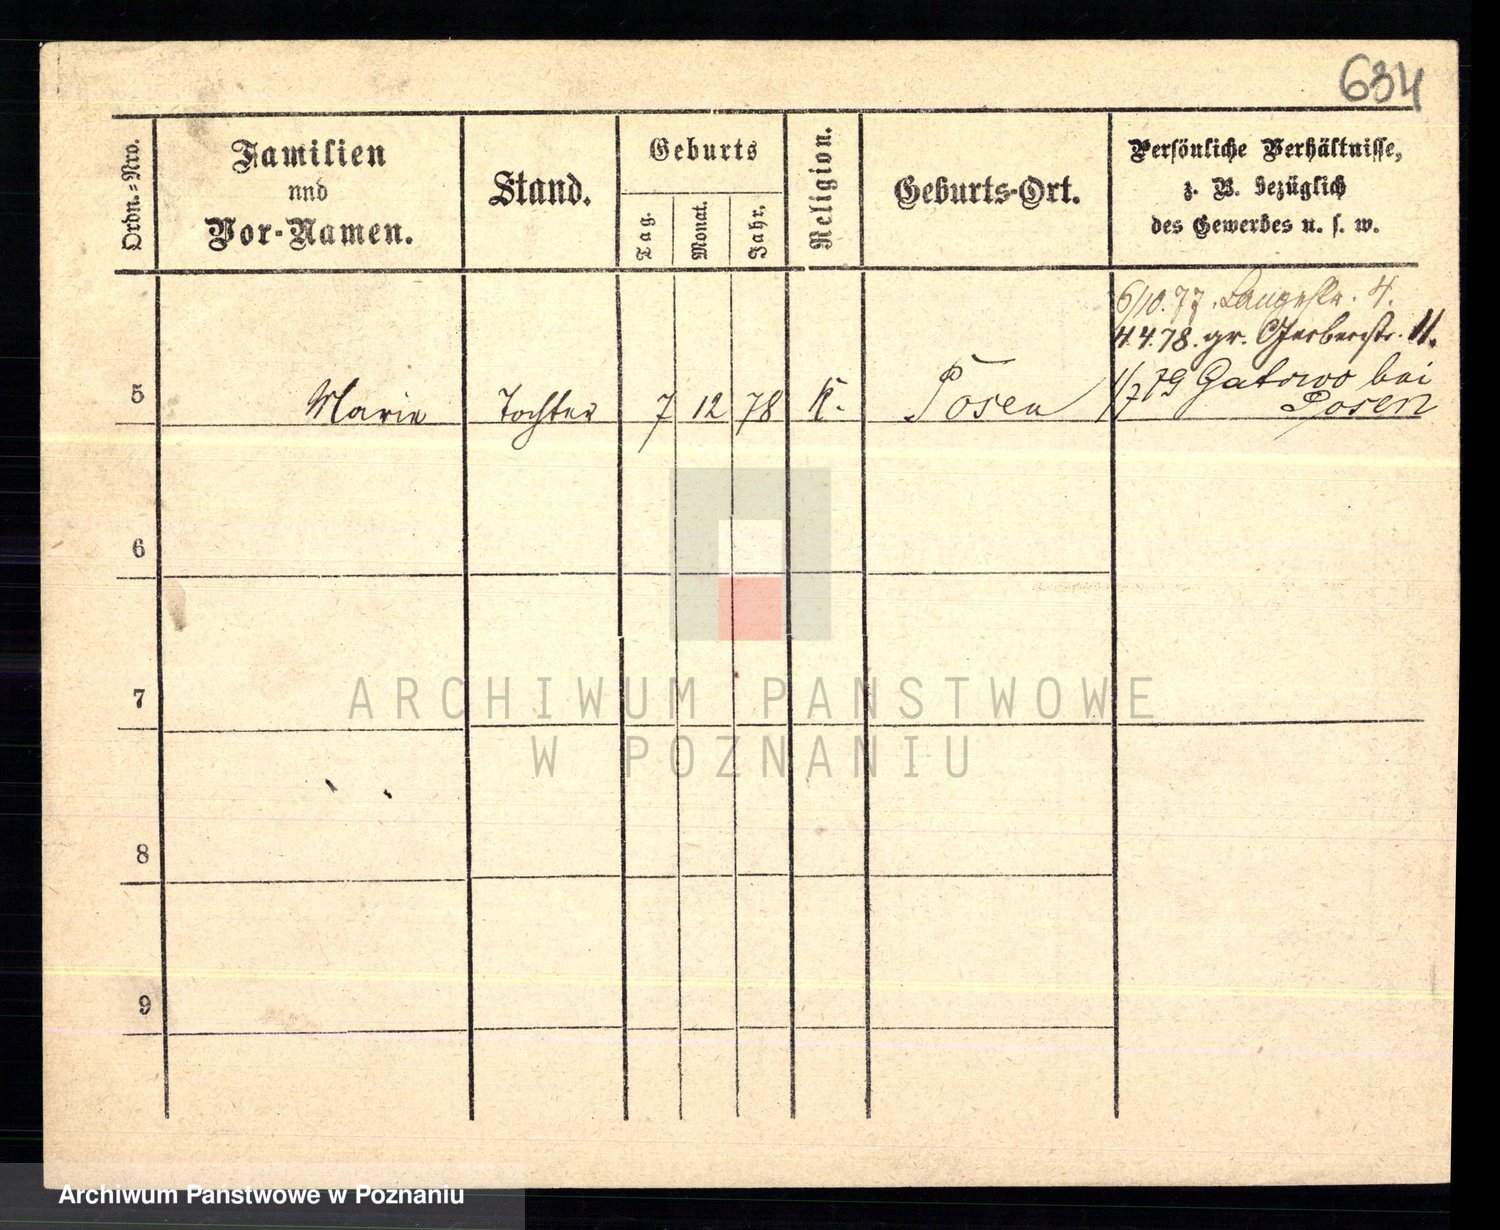 634
Ordn.=Nro.
Familien
und
Vor-Namen.
Stand.
Geburts
Tag.
Monat.
Jahr.
Religion.
Geburts-Ort.
Persönliche Verhältnisse,
z. B. bezüglich
des Gewerbes u. s. w.
6/10.77. Langestr. 4.
4.4.78. gr. Gerberstr. 11.
1/7 79 Gatowo bei
Posen
5 Marie Tochter 7 12 78 K. Posen
6
7
8
9
ARCHIWUM PAŃSTWOWE
W POZNANIU
Archiwum Państwowe w Poznaniu